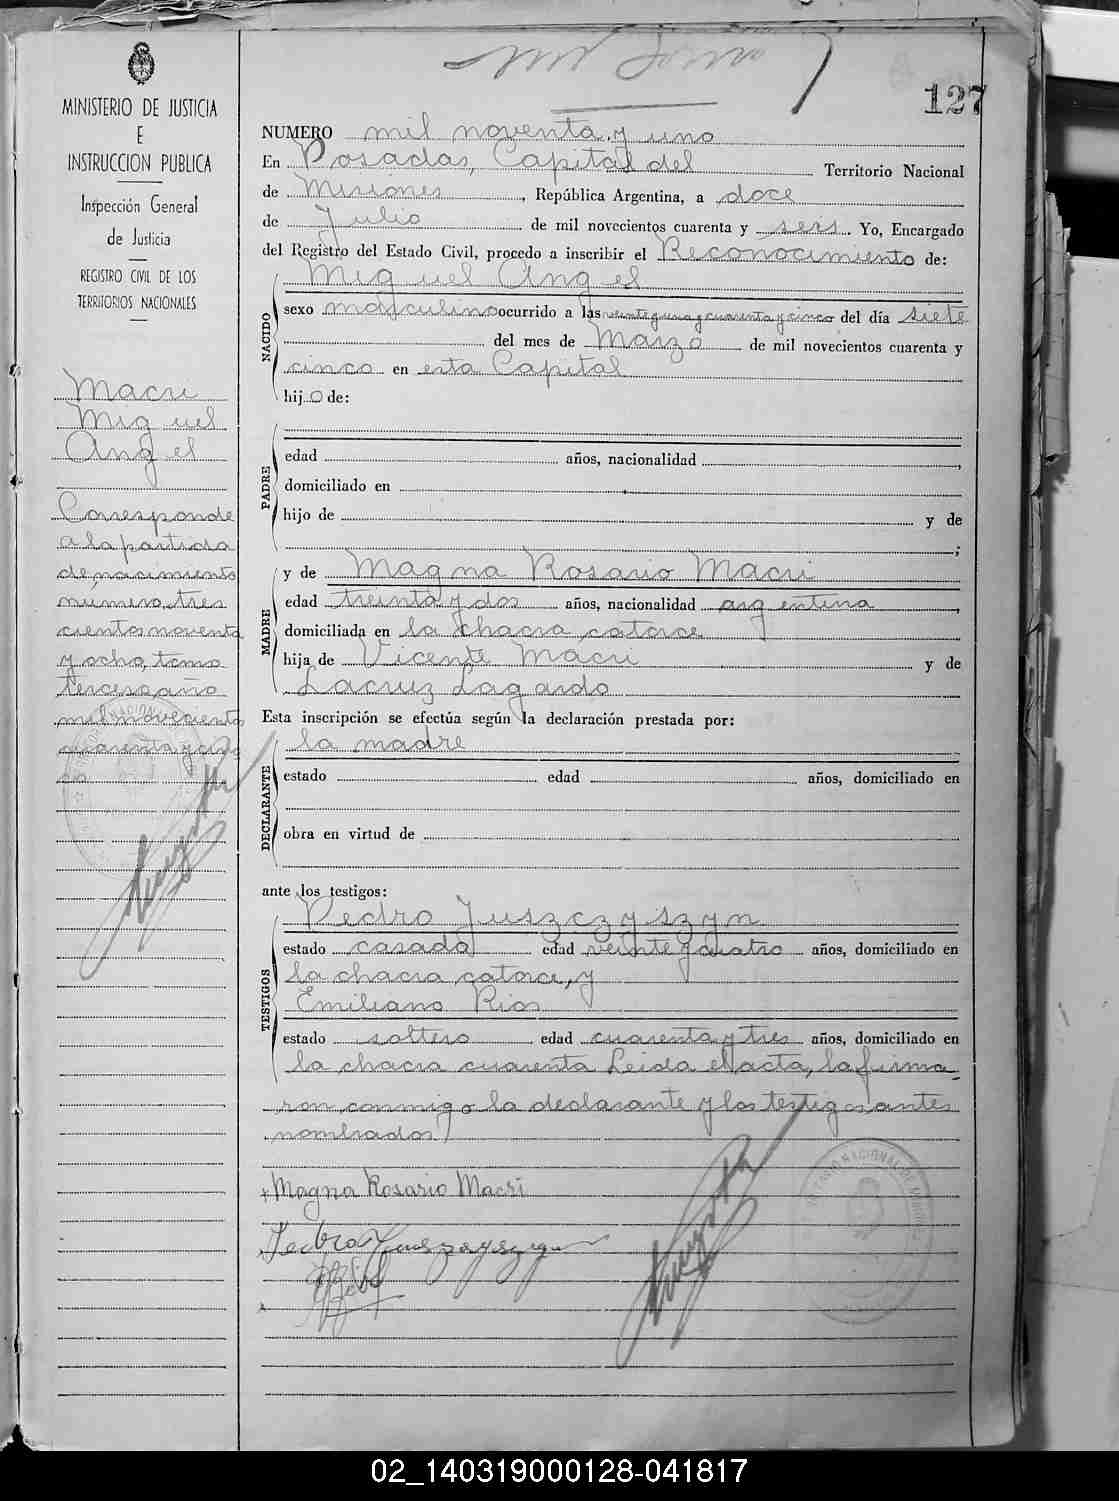 127
MINISTERIO DE JUSTICIA
E
INSTRUCCION PUBLICA
Inspección General
de Justicia
REGISTRO CIVIL DE LOS
TERRITORIOS NACIONALES
Macri
Miguel
Angel
Corresponde
a la partida
de nacimiento
número, tres
cientos noventa
y ocho, tomo
tercero año
mil novecientos
cuarenta y cin
co
NUMERO mil noventa y uno
En Posadas, Capital del Territorio Nacional
de Misiones, República Argentina, a doce
de Julio de mil novecientos cuarenta y seis. Yo, Encargado
del Registro del Estado Civil, procedo a inscribir el Reconocimiento de:
NACIDO
Miguel Angel
sexo masculino ocurrido a las veinte y una y cuarenta y cinco del día siete
del mes de Marzo de mil novecientos cuarenta y
cinco en esta Capital
hijo de:
PADRE
edad años, nacionalidad ,
domiciliado en
hijo de y de
;
MADRE
y de Magna Rosario Macri
edad treinta y dos años, nacionalidad argentina,
domiciliada en la chacra catorce
hija de Vicente Macri y de
Lacruz Lagardo
Esta inscripción se efectúa según la declaración prestada por:
DECLARANTE
la madre
estado edad años, domiciliado en
obra en virtud de
ante los testigos:
TESTIGOS
Pedro Juszczyszyn
estado casada edad veinte y cuatro años, domiciliado en
la chacra catorce, y
Emiliano Rios
estado soltero edad cuarenta y tres años, domiciliado en
la chacra cuarenta Leida el acta, la firma
ron conmigo la declarante y los testigos antes
nombrados
Magna Rosario Macri
Pedro Juszczyszyn
02_140319000128-041817